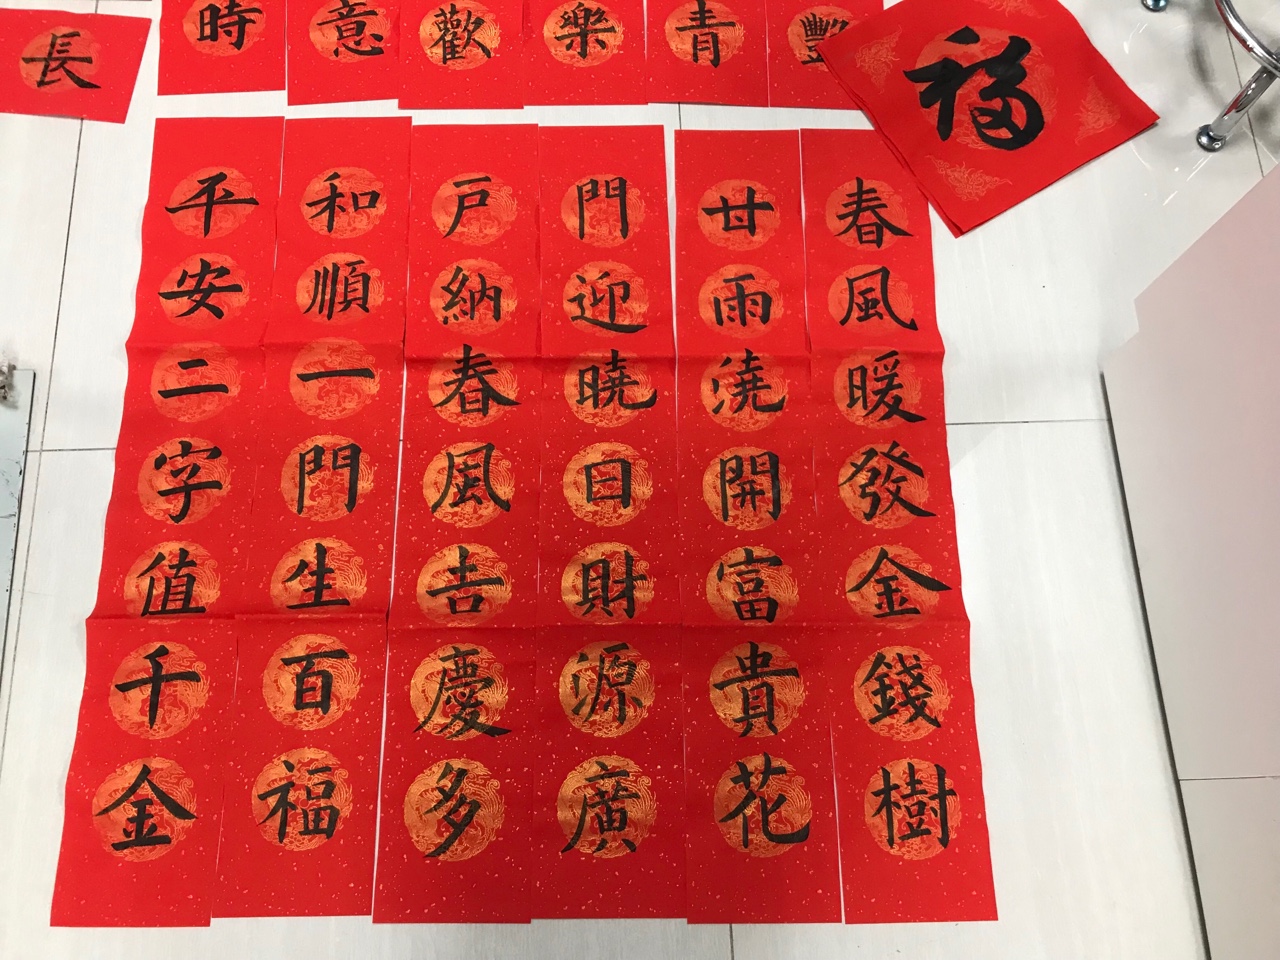 福
豐
青
樂
歡
意
時
長
春風暖發金錢樹
甘雨澆開富貴花
門迎曉日財源廣
戶納春風吉慶多
和順一門生百福
平安二字值千金